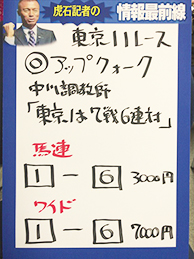 虎石記者の
情報最前線
東京11レース
◎アップクォーク
中川調教師
「東京は7戦6連対」
馬連
1-6 3000円
ワイド
1-6 7000円